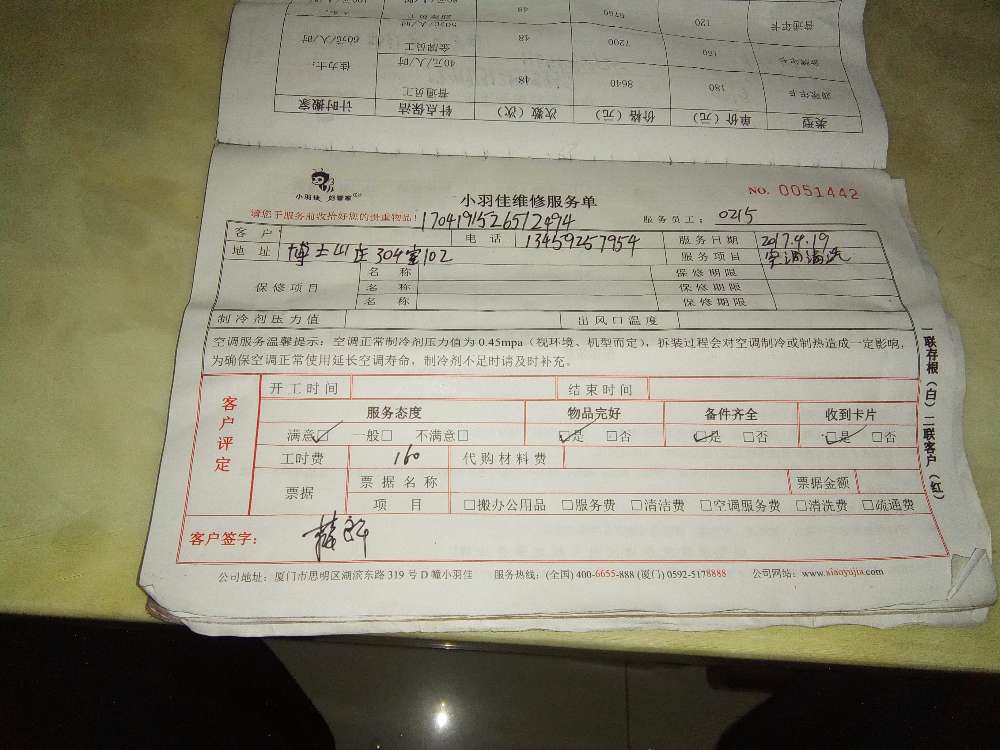 类型 单价（元） 价格（元） 次数（次） 钟点保洁 计时搬家
180 8640 48 普通员工 40元/人/时 佳力士：60元/人/时
金牌年卡 150 7200 48 金牌员工 50元/人/时
普通年卡 120 5760 48
小羽佳 好管家
小羽佳维修服务单
NO. 0051442
请您于服务前收拾好您的贵重物品！
1704191526512494
服务员工： 0215
客户 电话 13459257954 服务日期 2017.4.19
地址 博士山庄304室102 服务项目 空调清洗
保修项目
名称 保修期限
名称 保修期限
名称 保修期限
制冷剂压力值 出风口温度
空调服务温馨提示：空调正常制冷剂压力值为0.45mpa（视环境、机型而定），拆装过程会对空调制冷或制热造成一定影响，
为确保空调正常使用延长空调寿命，制冷剂不足时请及时补充。
客户评定
开工时间 结束时间
服务态度 物品完好 备件齐全 收到卡片
满意☑ 一般□ 不满意□ ☑是 □否 ☑是 □否 ☑是 □否
工时费 160 代购材料费
票据 票据名称 票据金额
项目 □搬办公用品 □服务费 □清洁费 □空调服务费 □清洗费 □疏通费
客户签字：
一联存根（白）二联客户（红）
公司地址：厦门市思明区湖滨东路319号D幢小羽佳 服务热线：(全国) 400-6655-888 (厦门) 0592-5178888 公司网站：www.xiaoyujia.com